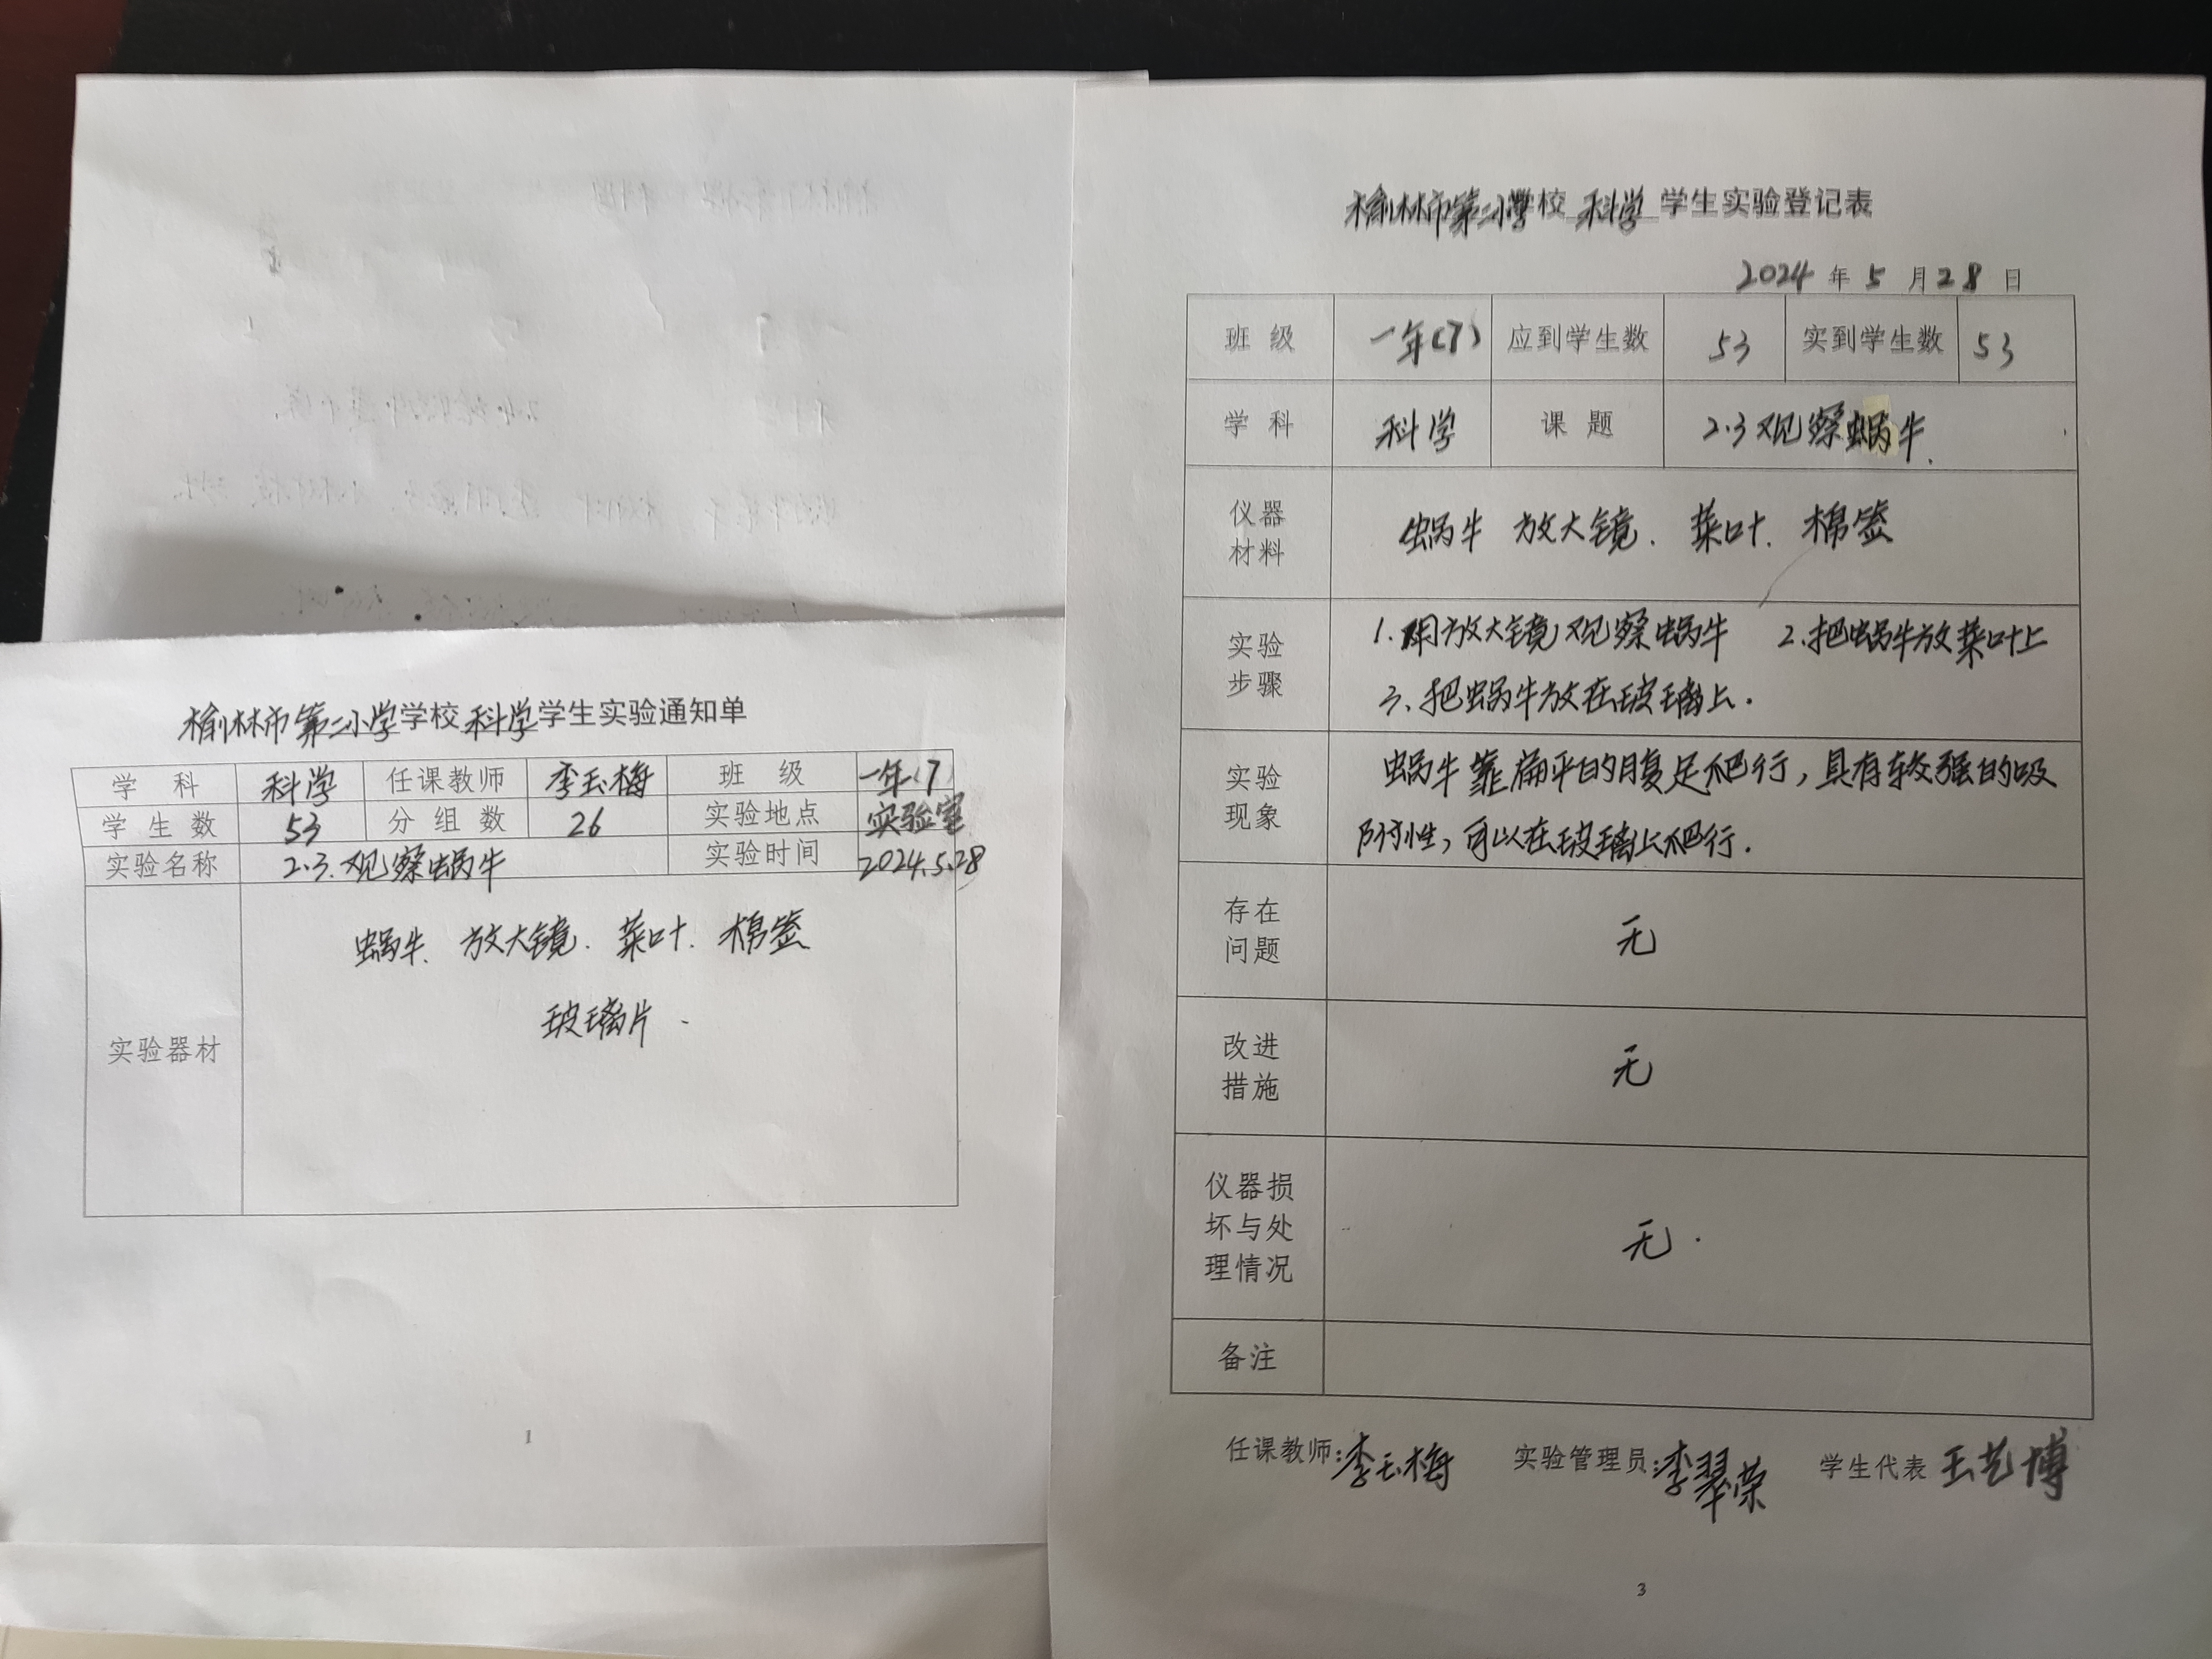 榆林市第二小学学校 科学 学生实验通知单
学 科 科学 任课教师 李玉梅 班 级 一年(7)
学 生 数 53 分 组 数 26 实验地点 实验室
实验名称 2.3.观察蜗牛 实验时间 2024.5.28
实验器材
蜗牛、放大镜、菜叶、棉签
玻璃片.
1
榆林市第二小学校 科学 学生实验登记表
2024 年 5 月 28 日
班 级 一年(7) 应到学生数 53 实到学生数 53
学 科 科学 课 题 2.3观察蜗牛.
仪器
材料
蜗牛 放大镜、菜叶、棉签
实验
步骤
1.用放大镜观察蜗牛 2.把蜗牛放菜叶上
3、把蜗牛放在玻璃上.
实验
现象
蜗牛靠扁平的腹足爬行，具有较强的吸
附性，可以在玻璃上爬行.
存在
问题
无
改进
措施
无
仪器损
坏与处
理情况
无.
备注
任课教师:李玉梅 实验管理员:李翠荣 学生代表 王艺博
3